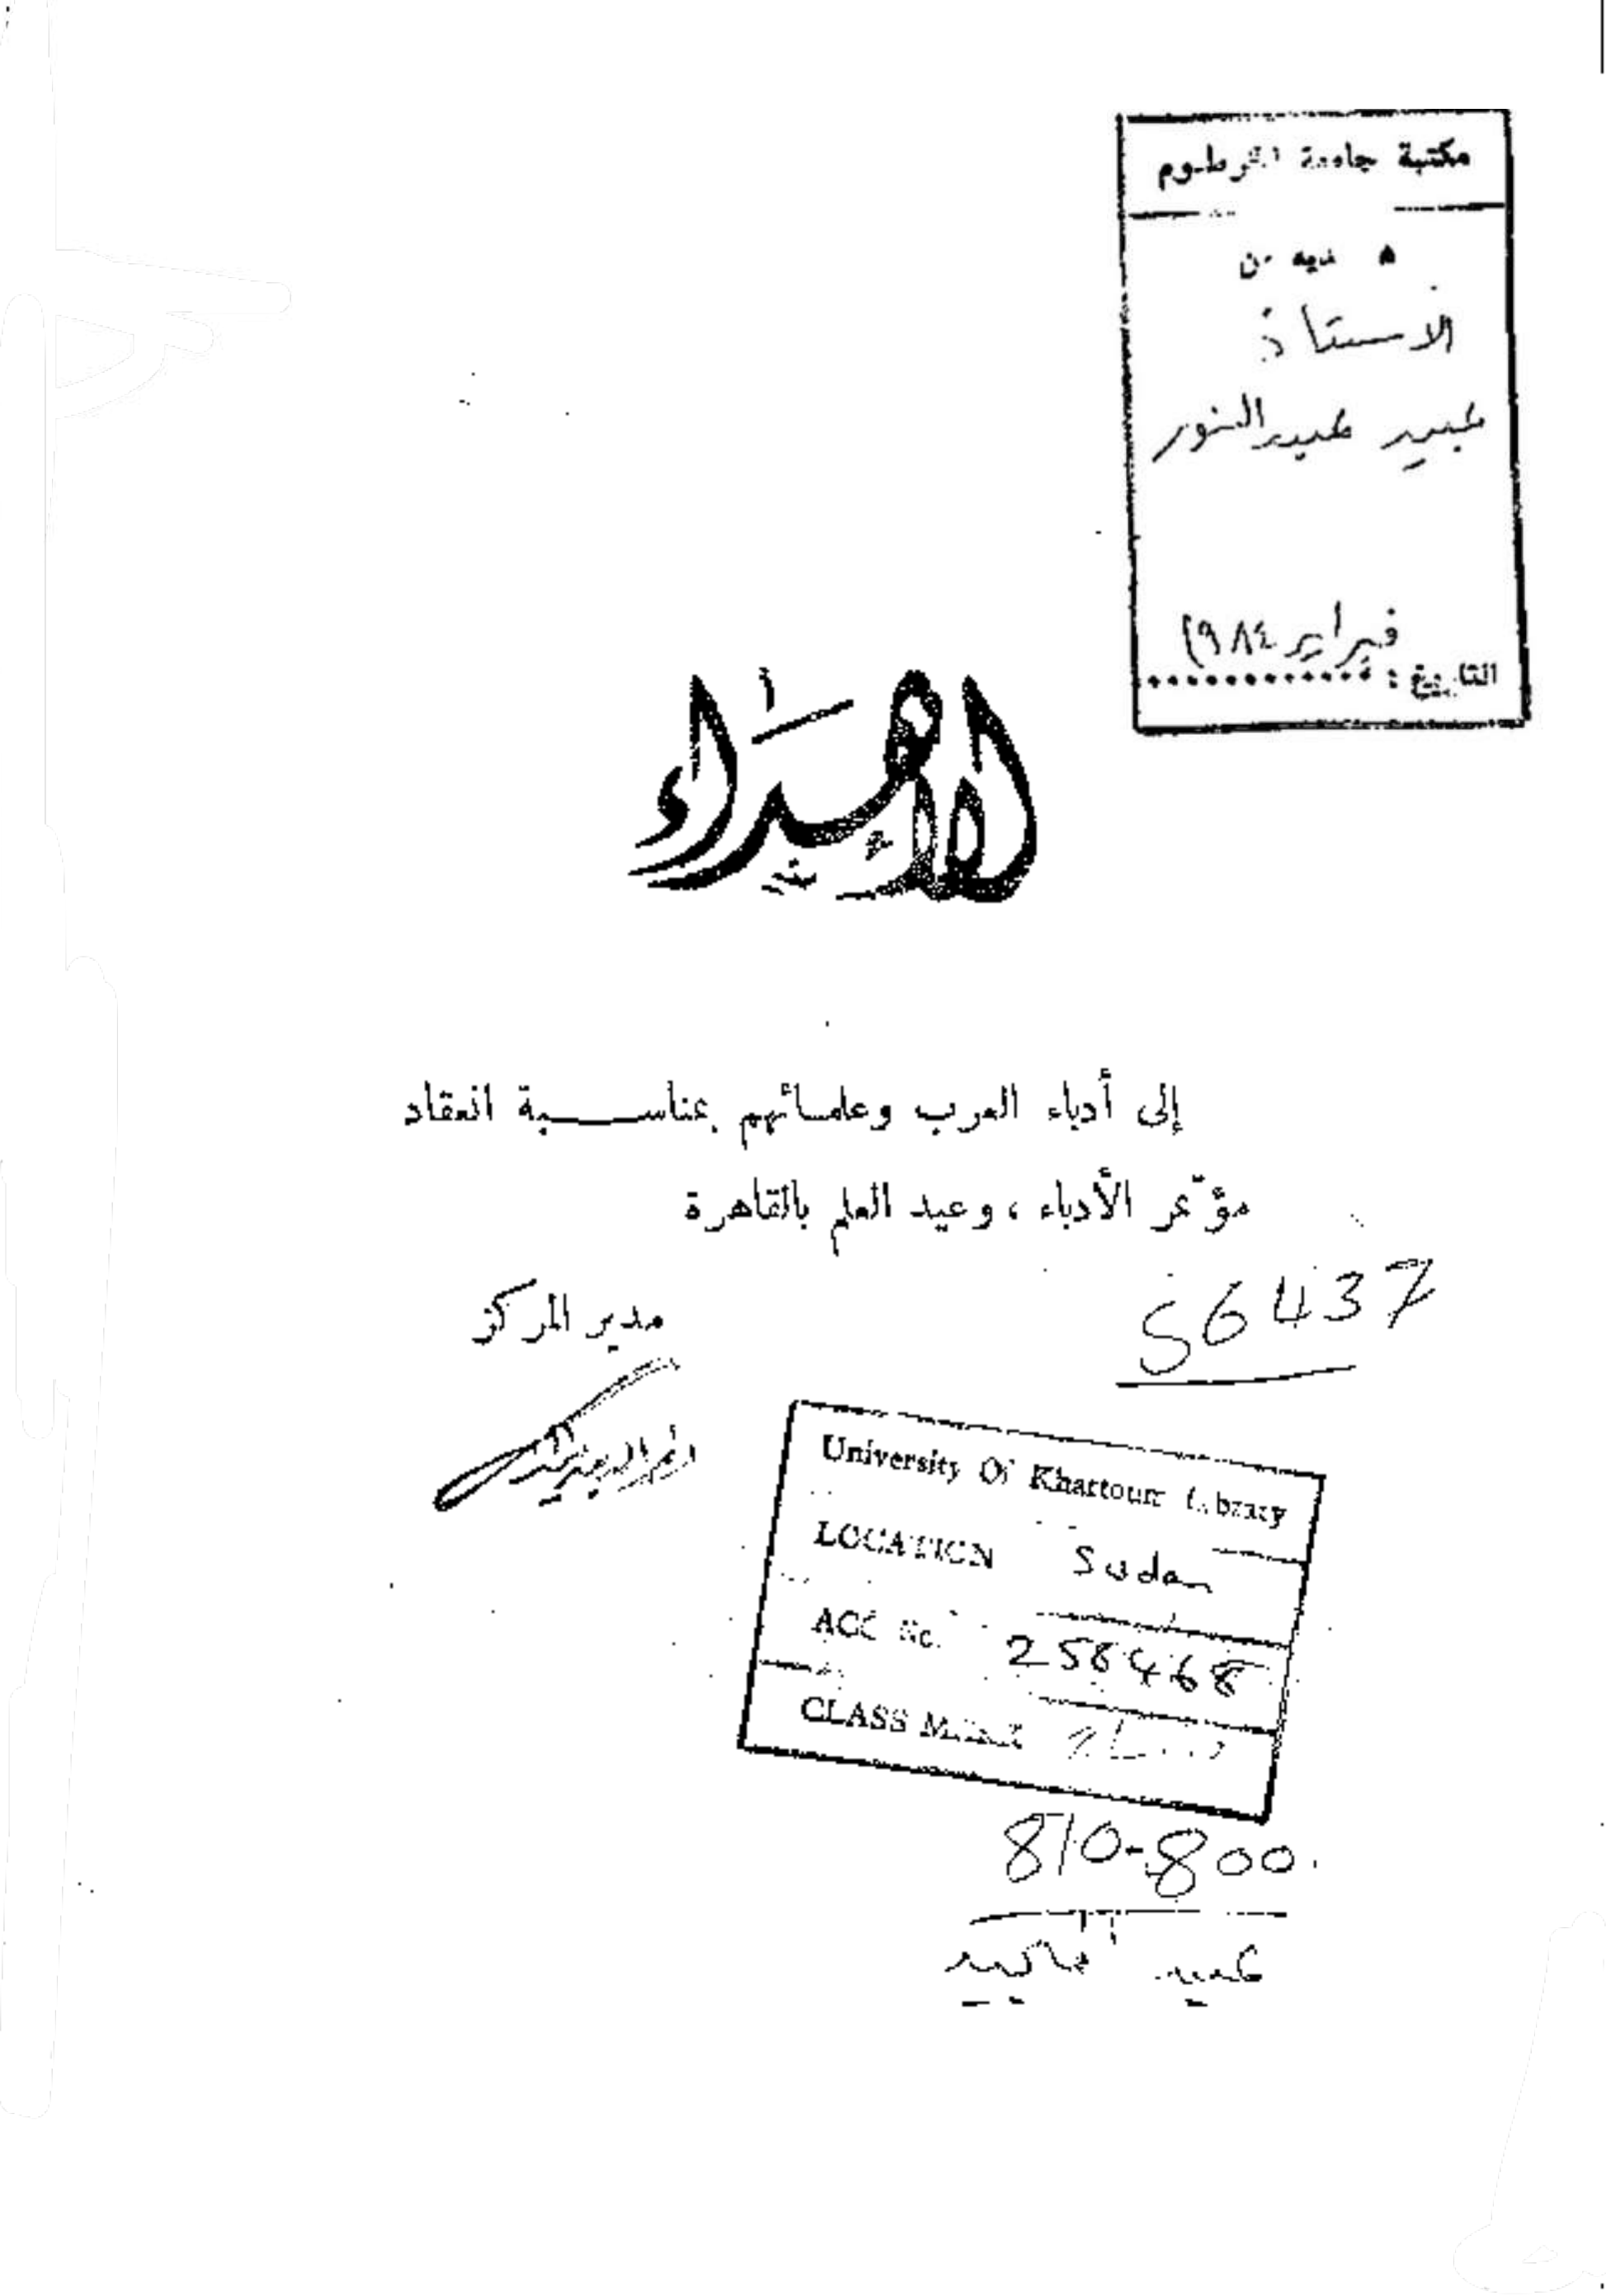 مكتبة جامعة الخرطوم
هديه من
الأستاذ
عبيد عبد النور
فبراير ١٩٨٤
التاريخ :
الإهداء
إلى أدباء العرب وعلمائهم بمناسبة انعقاد
مؤتمر الأدباء ، وعيد العلم بالقاهرة
مدير المركز
56437
University Of Khartoum Library
LOCATION Sudan
ACC No. 258468
CLASS MARK
810-800
عبيد